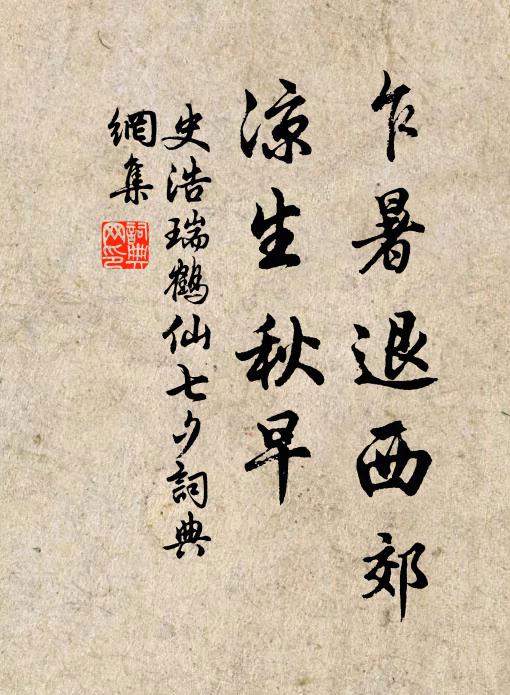 乍暑退西郊
凉生秋早
史浩瑞鶴仙七夕詞典
網集
詞典
网印